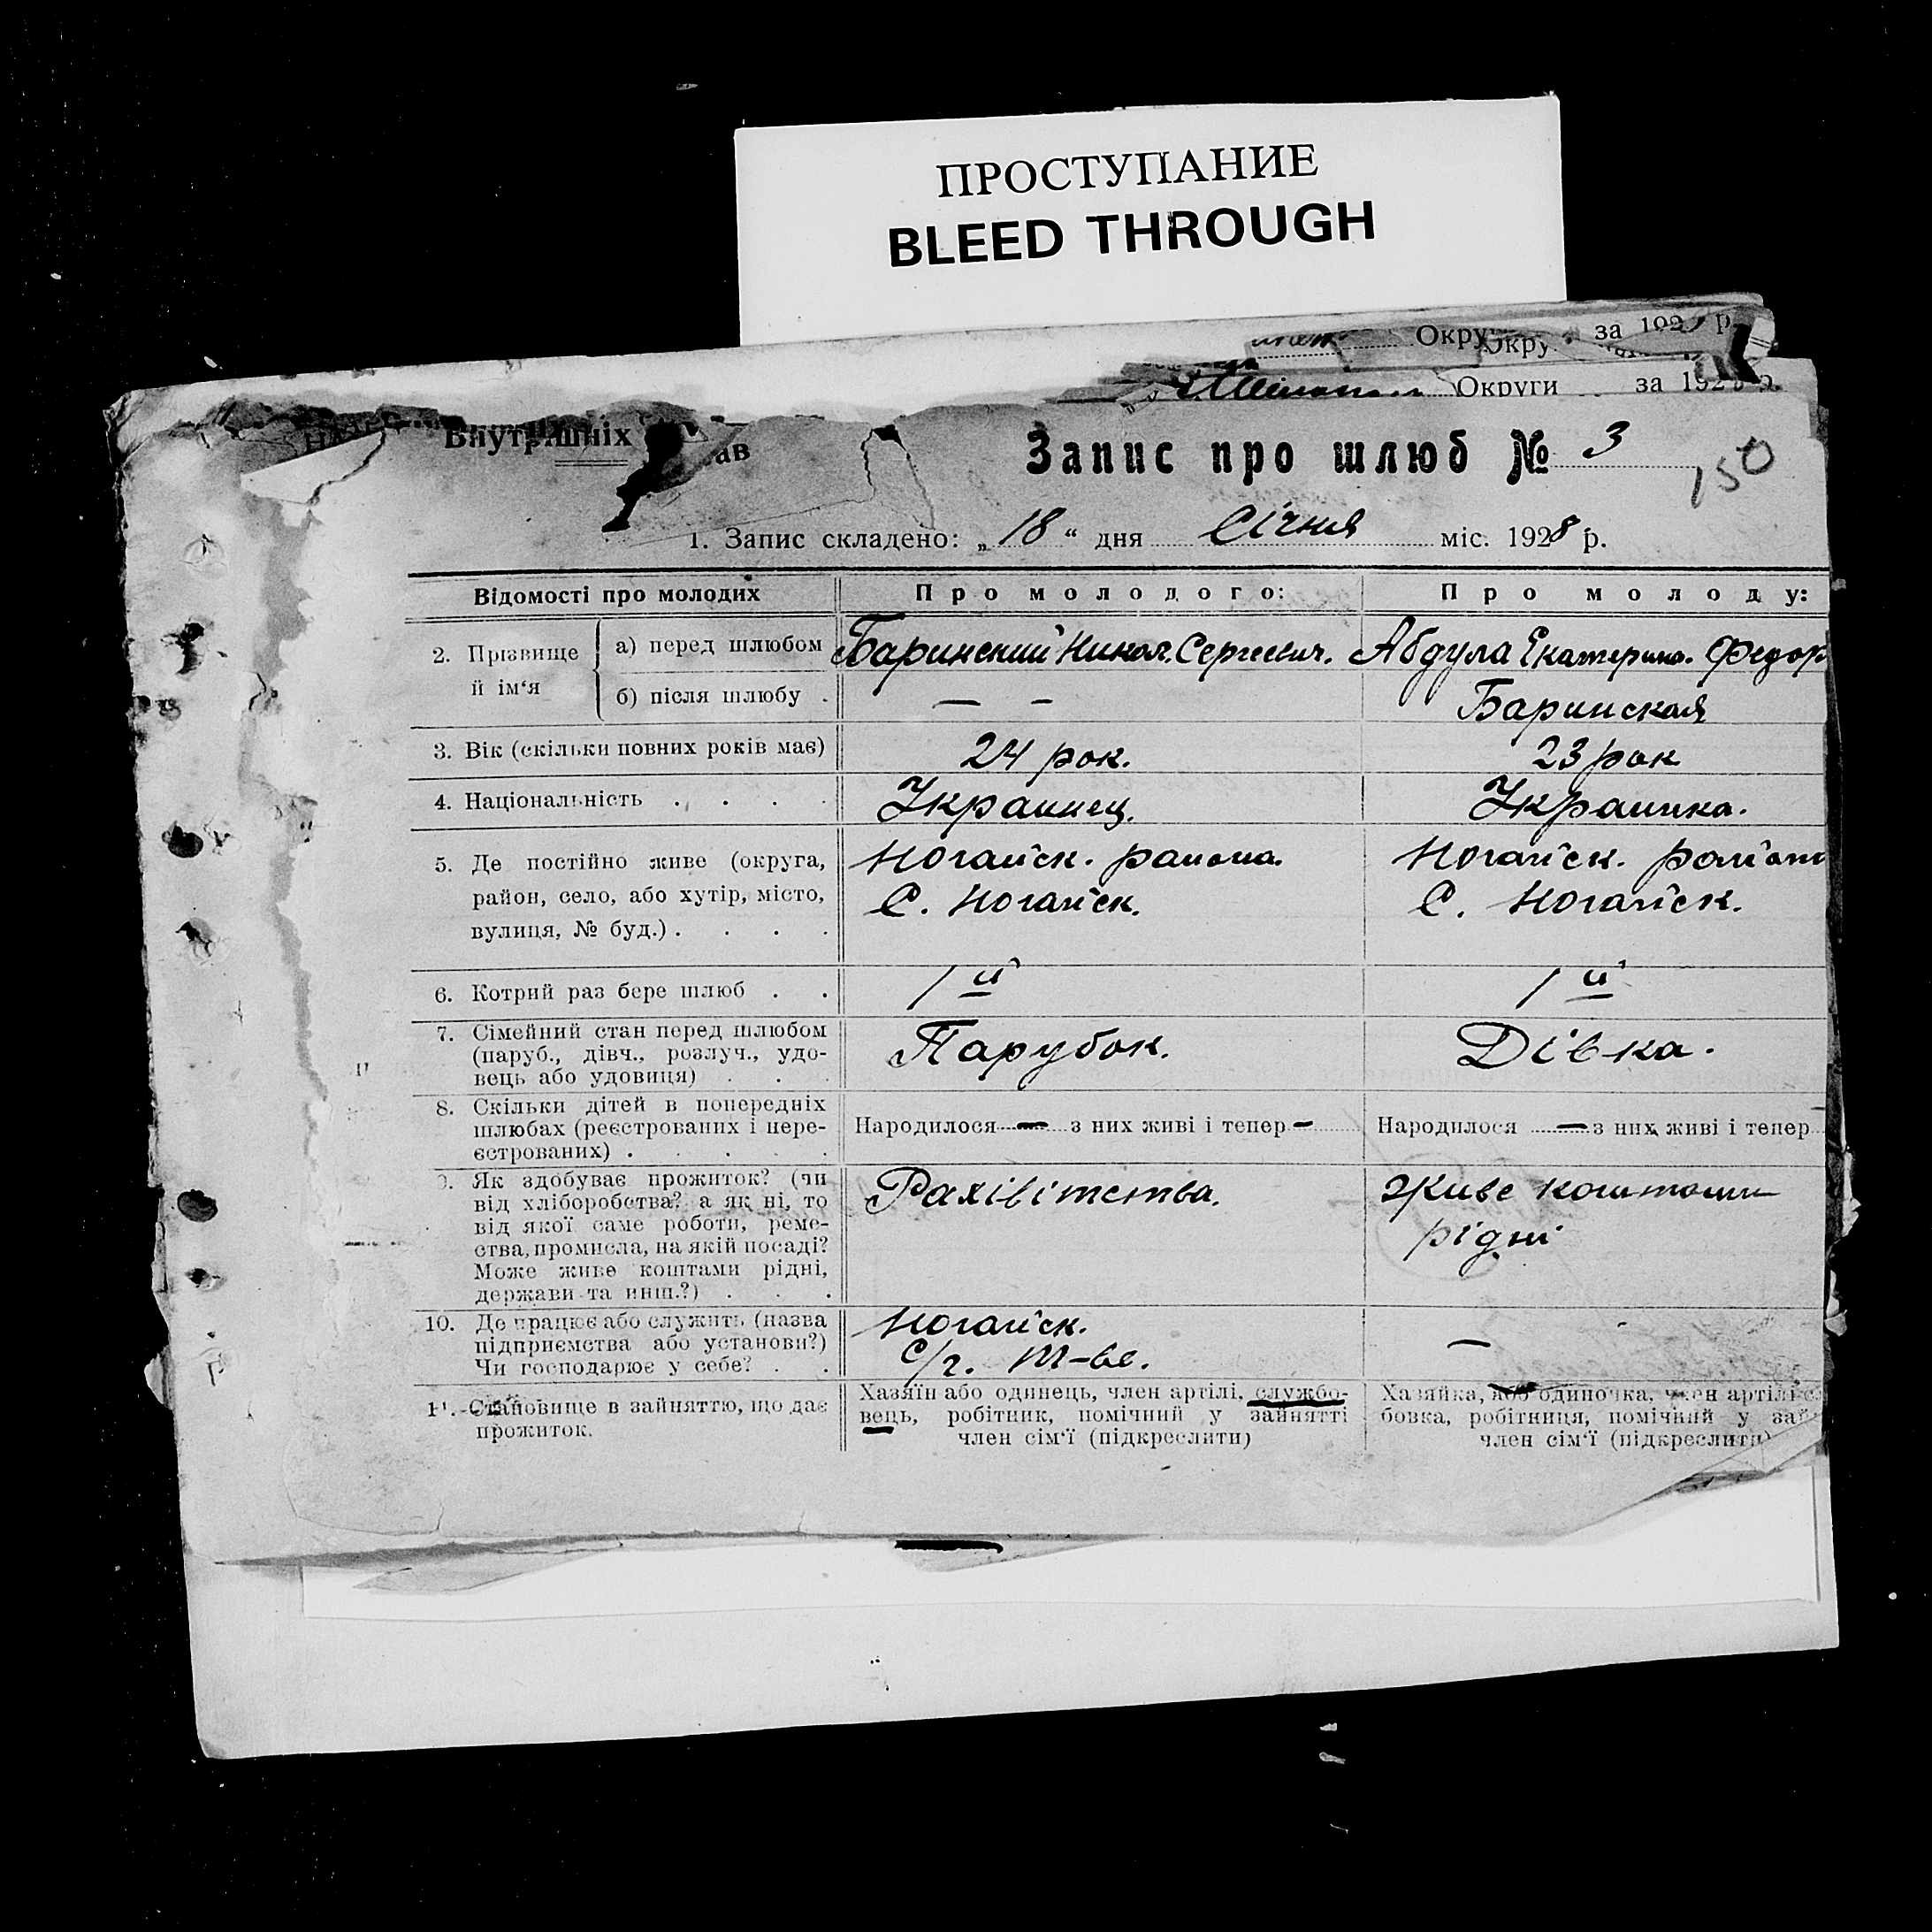 ПРОСТУПАНИЕ
BLEED THROUGH
Окру Окру за 192 р.
Округи за 192 р.
Внутрішніх ав
Запис про шлюб № 3
150
1. Запис складено: „18“ дня Січня міс. 1928 р.
Відомості про молодих
Про молодого:
Про молоду:
2. Прізвище й ім‘я
а) перед шлюбом
Баринский Никол. Сергеевич.
Абдула Екатерина. Федор
б) після шлюбу .
— –
Баринская
3. Вік (скільки повних років має)
24 рок.
23 рок
4. Національність . . . .
Украинец.
Украинка.
5. Де постійно живе (округа,
район, село, або хутір, місто,
вулиця, № буд.) . . . .
Ногайск. района.
С. Ногайск.
Ногайск. район
С. Ногайск.
6. Котрий раз бере шлюб . .
1й
1й
7. Сімейний стан перед шлюбом
(паруб., дівч., розлуч., удо-
вець або удовиця) . . .
Парубок.
Дівка.
8. Скільки дітей в попередніх
шлюбах (реєстрованих і нере-
єстрованих) . . . . .
Народилося — з них живі і тепер –
Народилося — з них живі і тепер
9. Як здобуває прожиток? (чи
від хліборобства? а як ні, то
від якої саме роботи, реме-
ства, промисла, на якій посаді?
Може живе коштами рідні,
держави та инш.?) . . .
Рахівітства.
Живе коштами
рідні
10. Де працює або служить (назва
підприємства або установи?)
Чи господарює у себе? . .
Ногайск.
С/г. т-ве.
—
11. Становище в зайняттю, що дає
прожиток.
Хазяїн або одинець, член артілі, службо-
вець, робітник, помічний у зайнятті
член сім‘ї (підкреслити)
Хазяйка, або одиночка, член артілі
бовка, робітниця, помічний у зай
член сім‘ї (підкреслити)